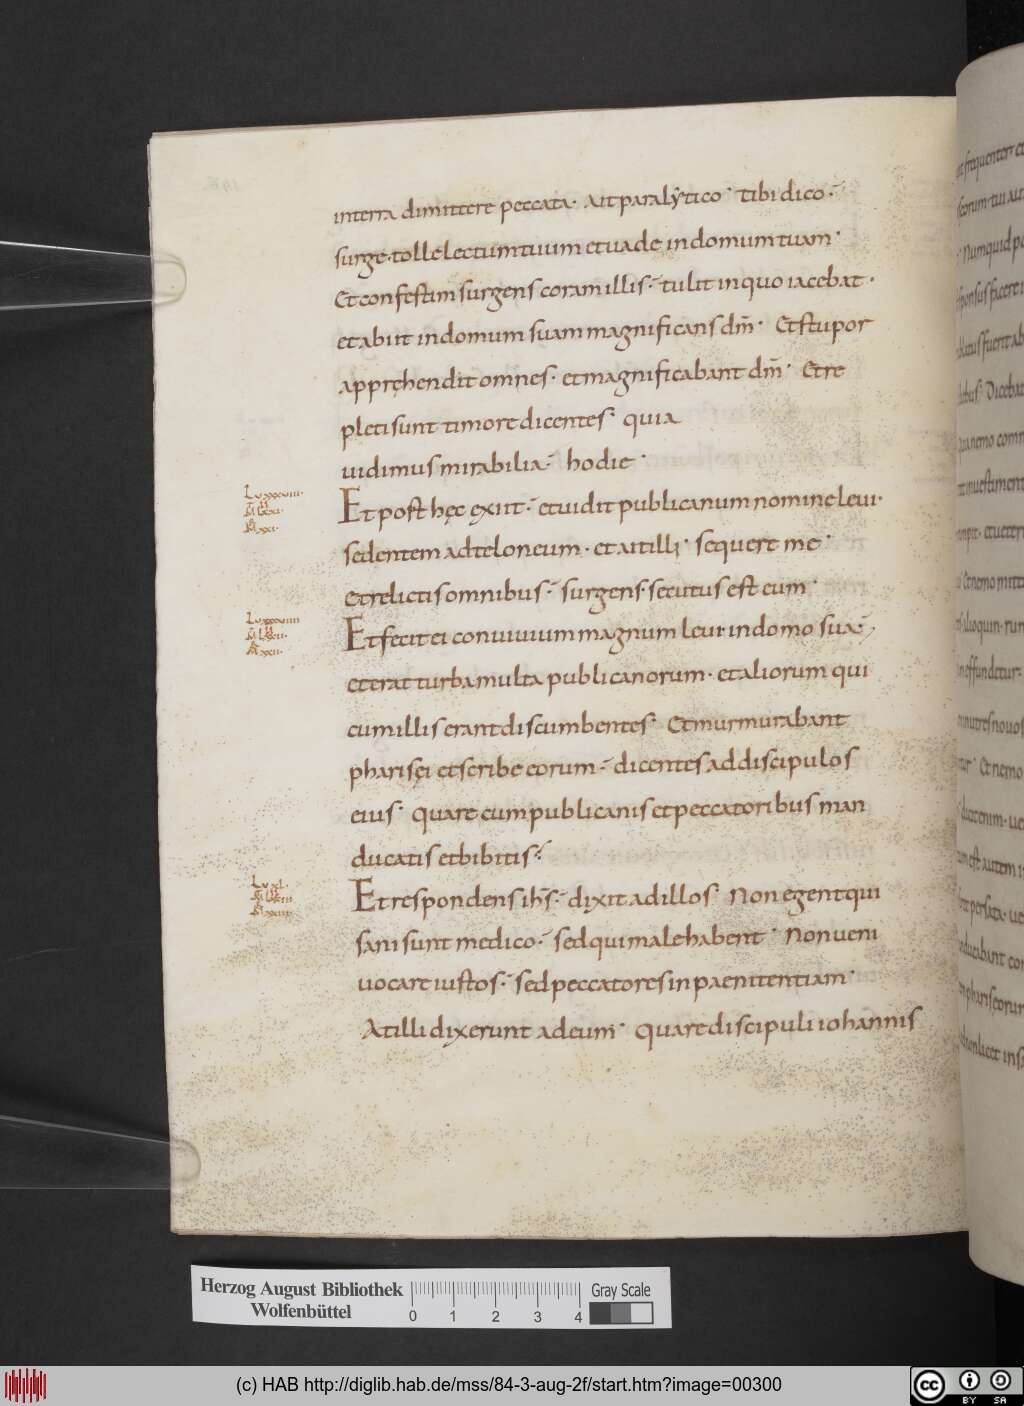 in terra dimittere peccata. Ait paralytico. Tibi dico.
surge. tolle lectum tuum et vade in domum tuam.
Et confestim surgens coram illis. tulit in quo iacebat.
et abiit in domum suam magnificans dm̄. Et stupor
apprehendit omnes. et magnificabant dm̄. Et re
pleti sunt timore dicentes. quia
uidimus mirabilia. hodie.
Et post hęc exiit. et uidit publicanum nomine leui.
sedentem ad teloneum. et ait illi. sequere me.
Et relictis omnibus. surgens. secutus est eum.
Et fecit ei conuiuium magnum leui in domo sua.
et erat turba multa publicanorum. et aliorum qui
cum illis erant discumbentes. Et murmurabant
pharisęi et scribe eorum. dicentes ad discipulos
eius. Quare cum publicanis et peccatoribus man
ducatis et bibitis.
Et respondens ihs̄. dixit ad illos. Non egent qui
sani sunt medico. sed qui male habent. Non ueni
uocare iustos. sed peccatores in paenitentiam.
At illi dixerunt ad eum. Quare discipuli iohannis
Herzog August Bibliothek
Wolfenbüttel
0 1 2 3 4
Gray Scale
(c) HAB http://diglib.hab.de/mss/84-3-aug-2f/start.htm?image=00300
cc BY SA